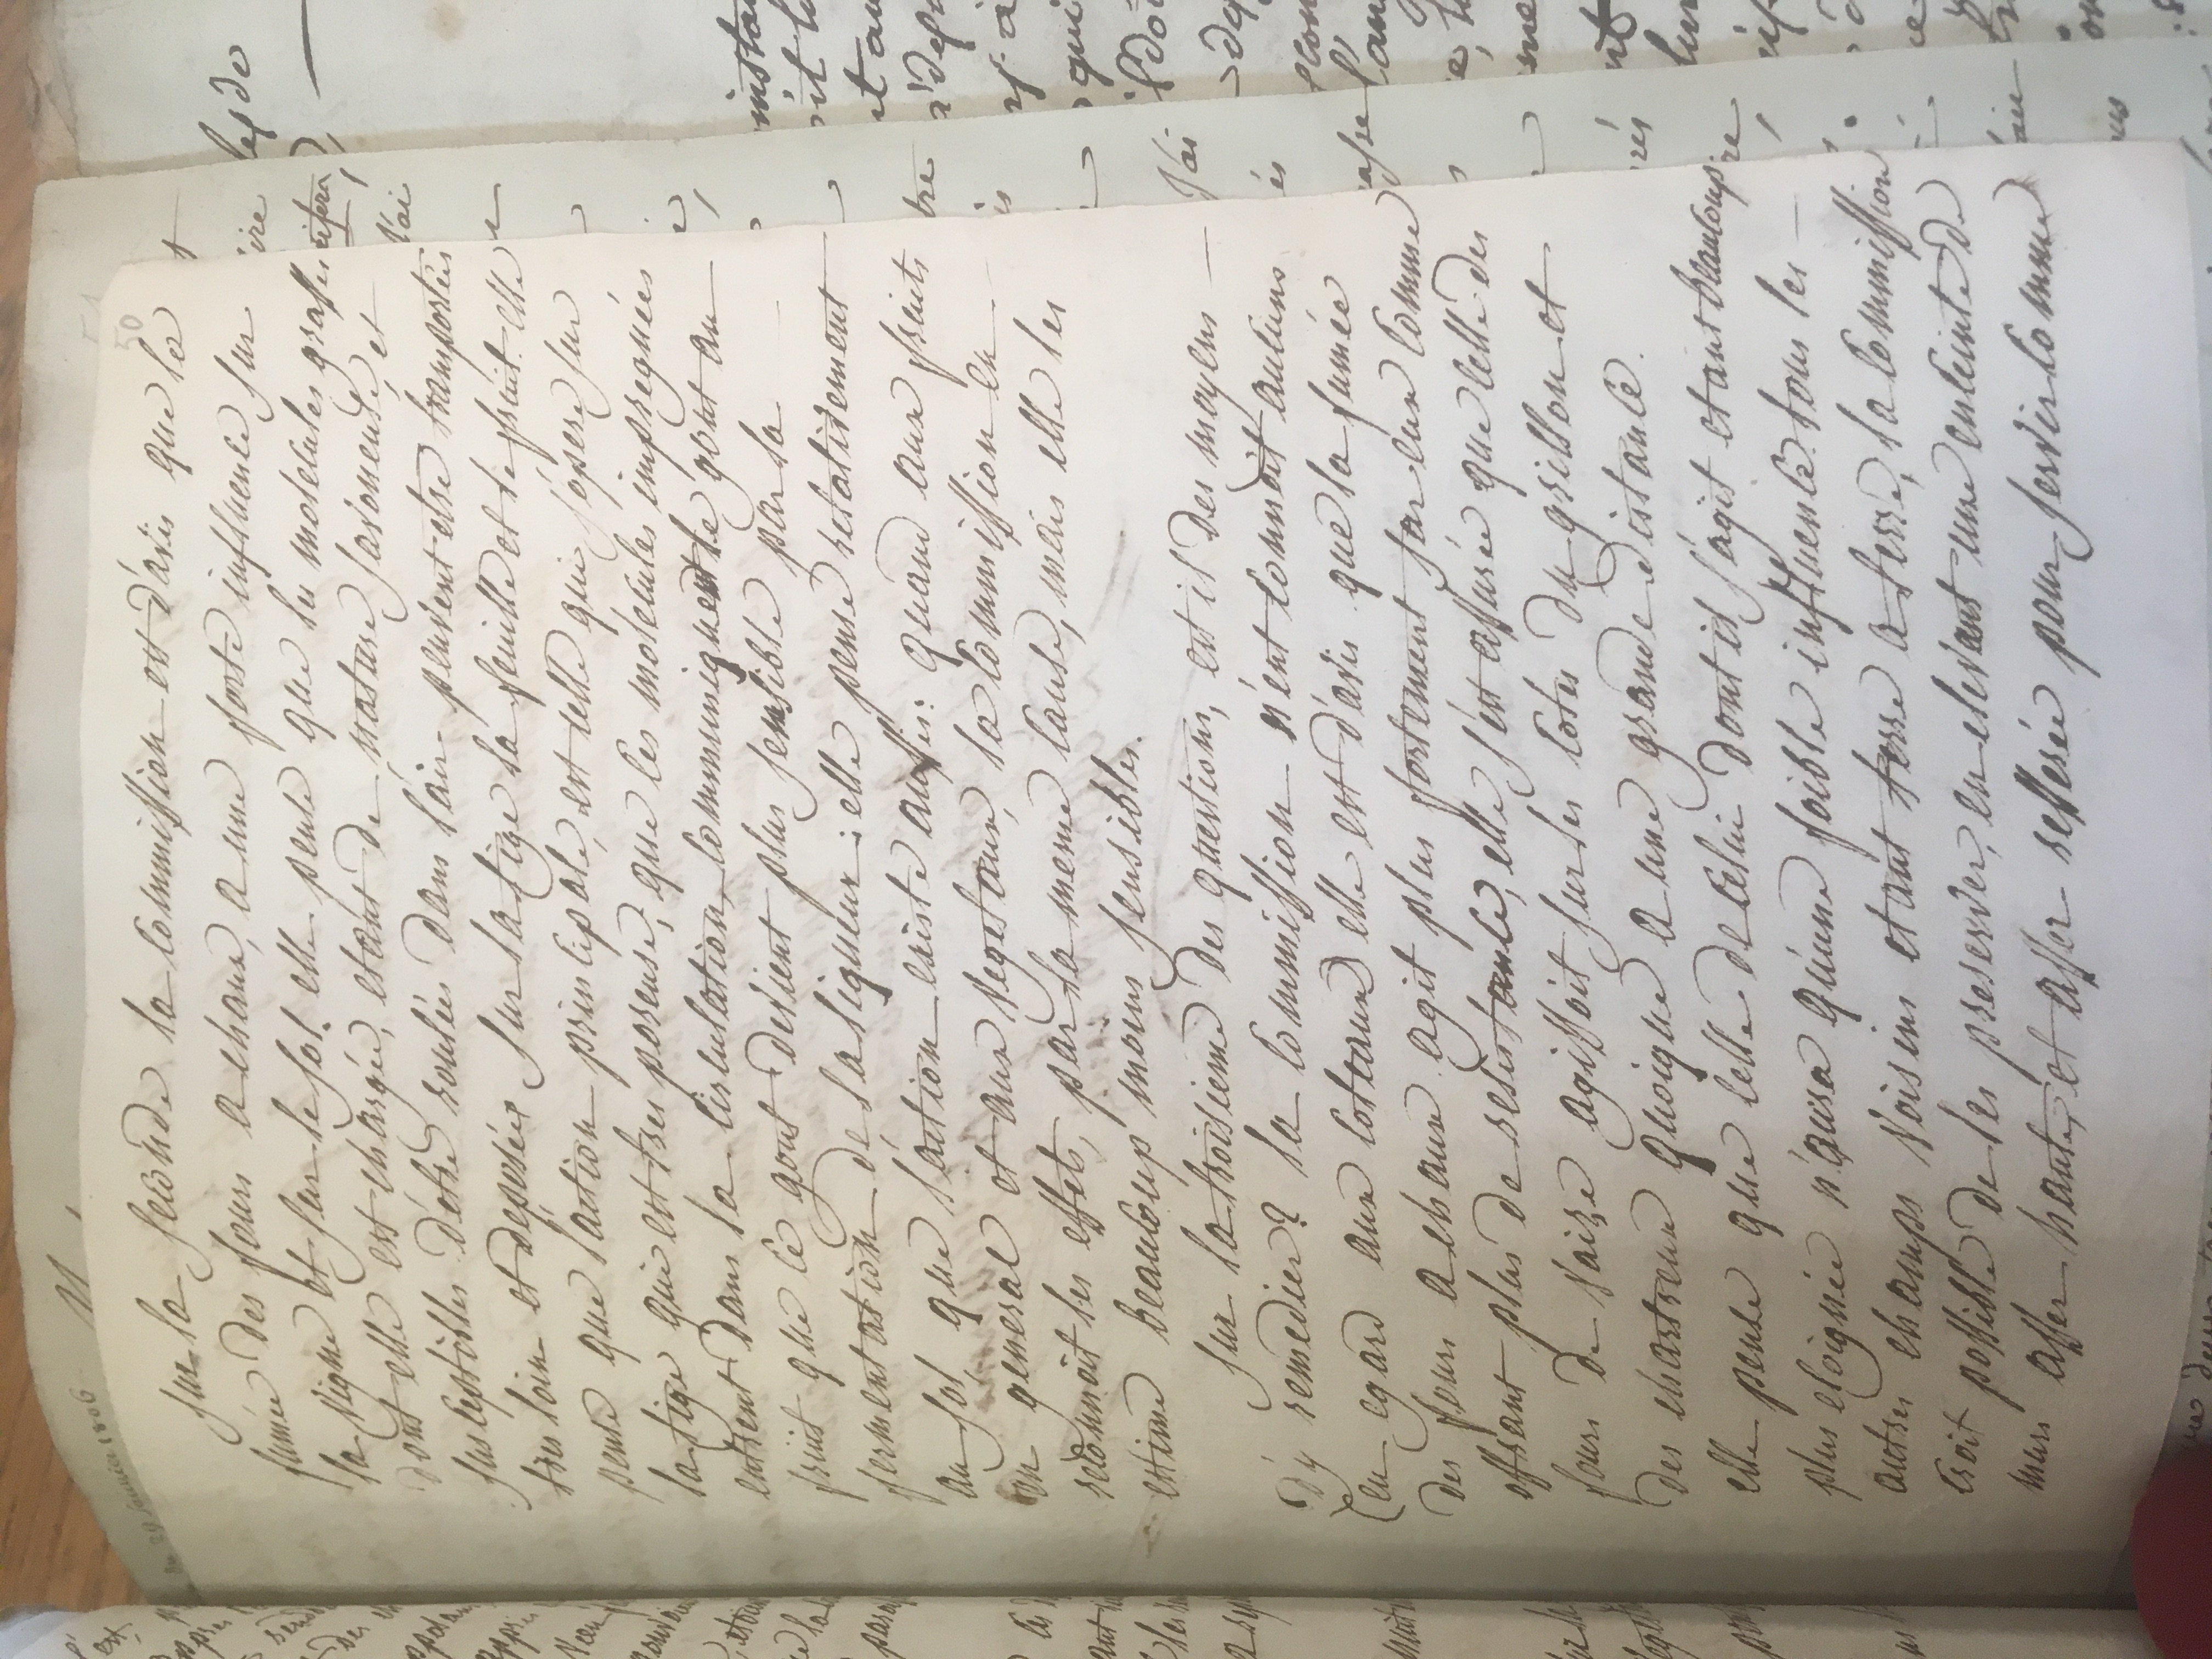 50
sur la seconde la commission est d'avis que la
fumée des fours a chaux, a une forte influence sur
la vigne et sur le sol elle pense que les molecules grasses
dont elle est chargée, etant de nature savoneuse, et
susceptibles d'être roulées dans l'air peuvent etre transportées
tres loin et deposées sur la tige la feuille et le fruit. elle
pense que l'action principale, est celle qui s'opere sur
la tige qui est tres poreuse, que les molecules impregnées
entrent dans la circulation, communiquent le gout au
fruit que le gout devient plus sensible par la
fermentation de la liqueur: elle pense relativement
au sol que l'action existe aussi: quand aux fruits
en general et aux vegetaux, la commission en
reconnait les effets, par la meme cause, mais elle les
estime beaucoup moins sensibles.
sur la troisieme des questions, est il des moyens
d'y remedier? la commission n'en connait aucuns
(eu egard aux coteaux) elle est d'avis que la fumée
des fours a chaux agit plus fortement sur eux comme
offrant plus de resistance, elle s'est assurée que celle des
fours de vaize agissoit sur les cotes du grillon et
des chartreux quoique a une grande distance.
elle pense que celle de celui dont il s'agit etant beaucoup
plus eloignée n'aura qu'une faible influence. tous les
autres champs voisins etant terre a terre, la commission
croit possible de les preserver, en elevant une enceinte de
murs assez hauts, et assez resserée pour servir comme